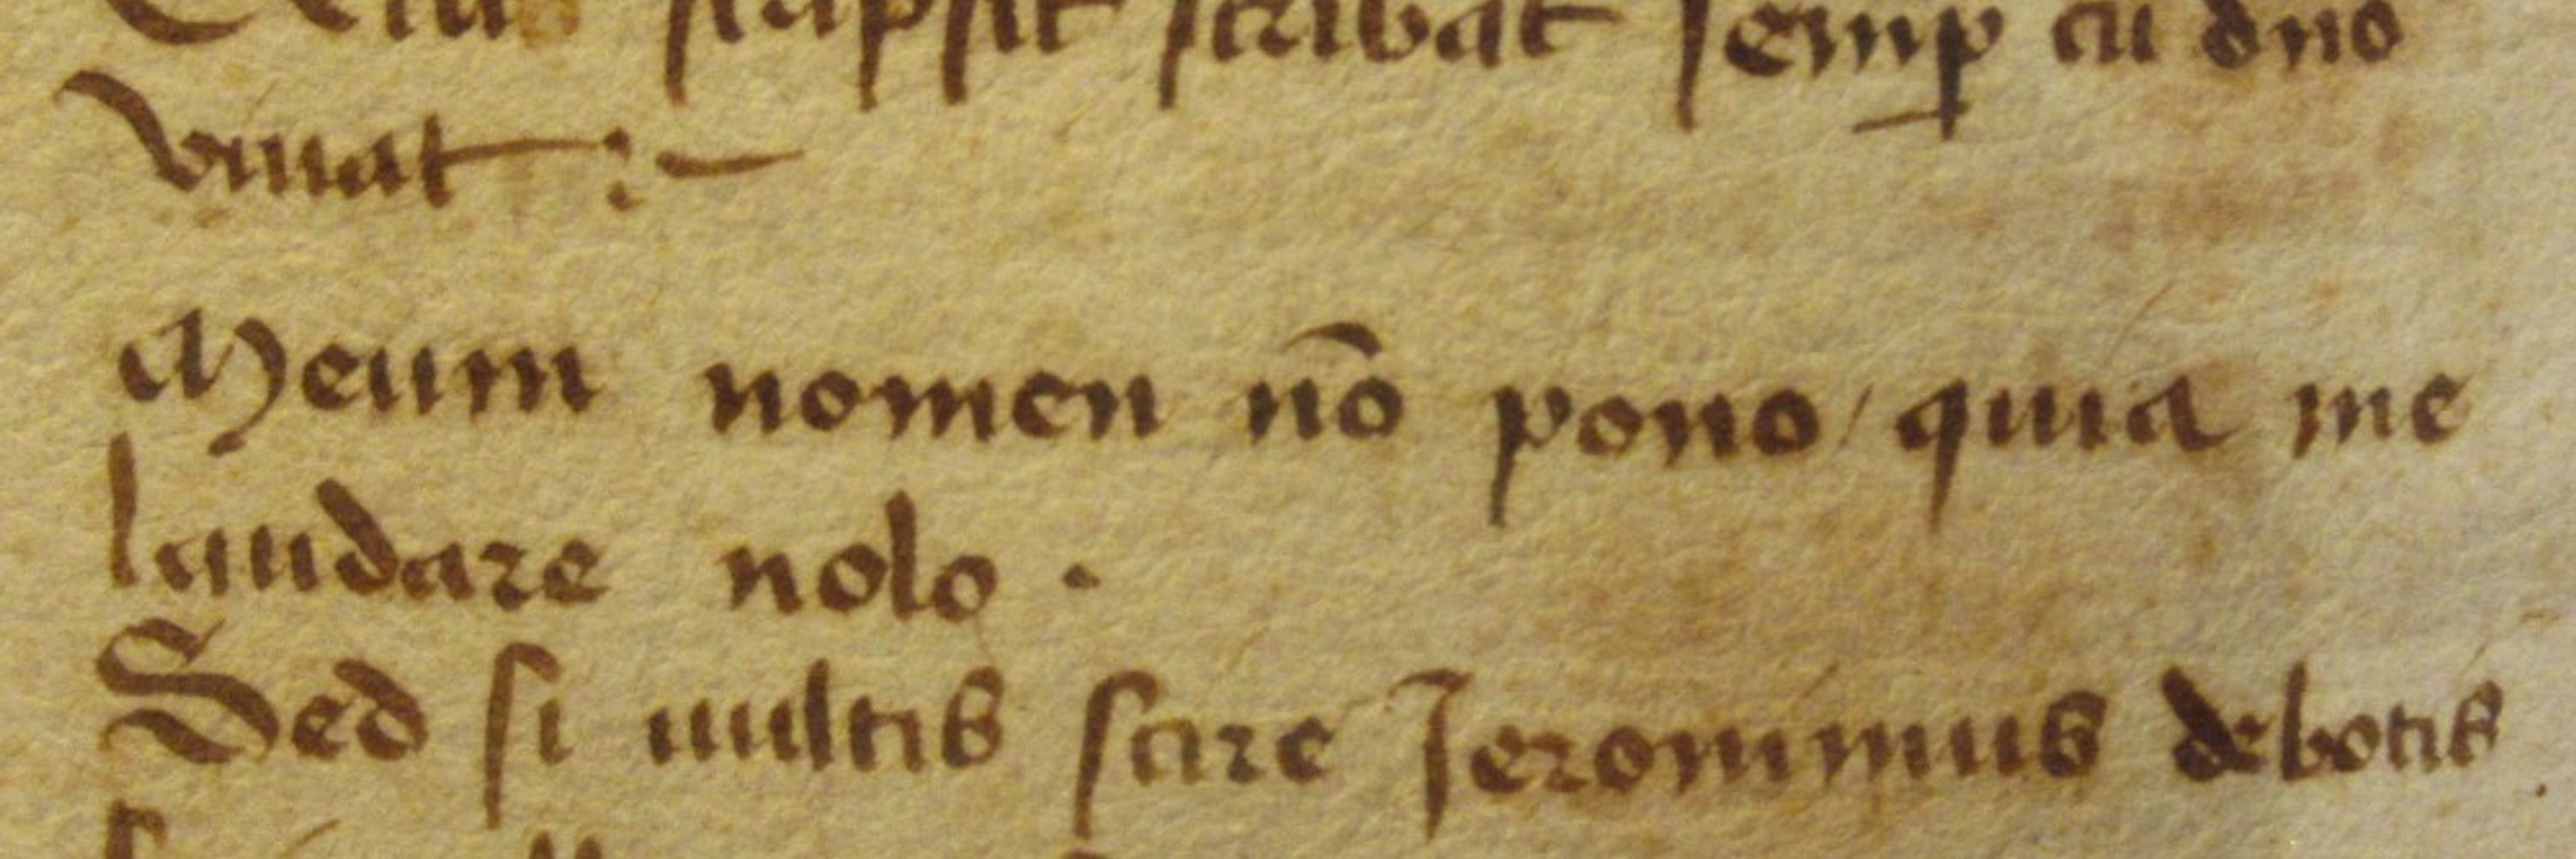 scripsit scribat semp cū dño
viuat :~
Meum nomen nō pono / quia me
laudare nolo .
Sed si uultis scire Jeronimus de botis